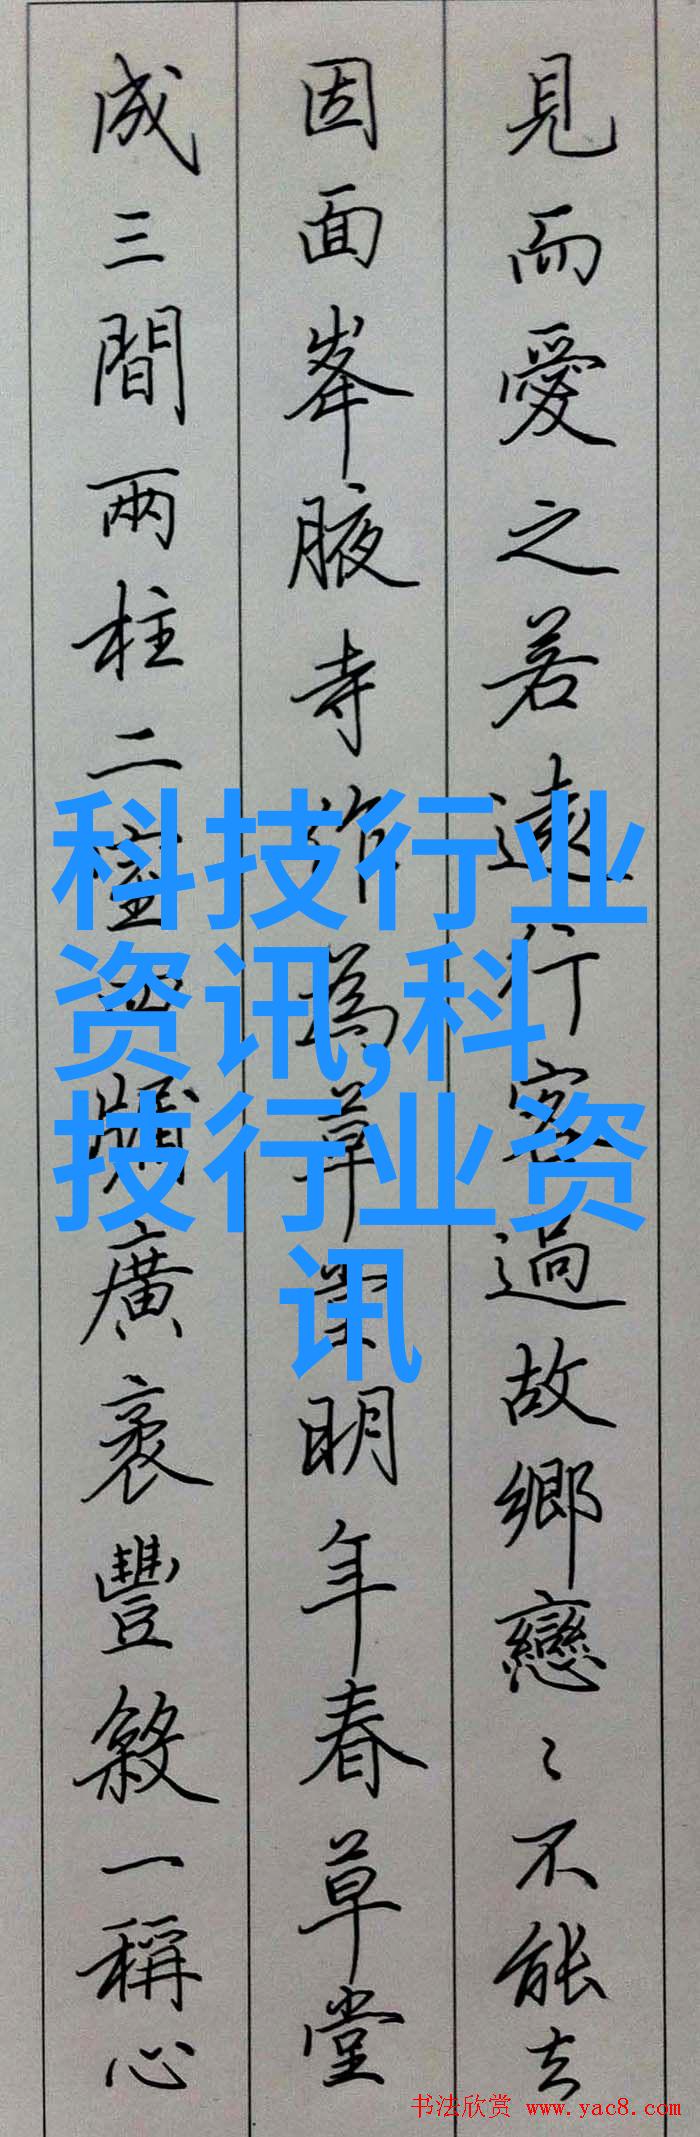 見而愛之若遠行客過故鄉戀〻不能去
因面峯腋寺作為草堂明年春草堂
成三間兩柱二室四牖廣袤豐殺一稱心
科技行业
资讯,科
技行业资
讯
书法欣赏 www.yac8.com